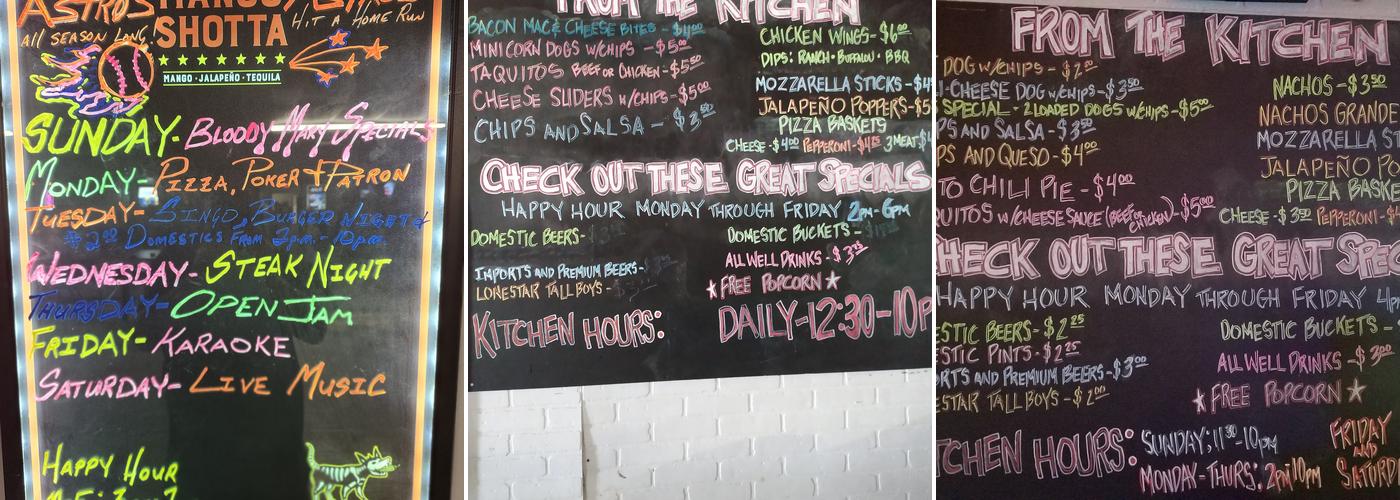 ASTROS MANGO
SHOTTA
HIT A HOME RUN
ALL SEASON LONG
MANGO · JALAPEÑO · TEQUILA
SUNDAY- BLOODY MARY SPECIALS
MONDAY- PIZZA, POKER & PATRON
TUESDAY- BINGO, BURGER NIGHT &
$2.00 DOMESTICS FROM 2p.m. - 10p.m.
WEDNESDAY- STEAK NIGHT
THURSDAY- OPEN JAM
FRIDAY- KARAOKE
SATURDAY- LIVE MUSIC
HAPPY HOUR
FROM THE KITCHEN
BACON MAC & CHEESE BITES - $4.00
MINI CORN DOGS W/CHIPS - $5.00
TAQUITOS BEEF OR CHICKEN - $5.50
CHEESE SLIDERS W/CHIPS - $5.00
CHIPS AND SALSA - $3.50
CHICKEN WINGS - $6.00
DIPS: RANCH · BUFFALO · BBQ
MOZZARELLA STICKS - $4
JALAPEÑO POPPERS - $5
PIZZA BASKETS
CHEESE - $4.00 PEPPERONI - $4.25 3 MEAT $4
CHECK OUT THESE GREAT SPECIALS
HAPPY HOUR MONDAY THROUGH FRIDAY 2PM-6PM
DOMESTIC BEERS-
IMPORTS AND PREMIUM BEERS-
LONESTAR TALL BOYS -
DOMESTIC BUCKETS -
ALL WELL DRINKS - $3.25
FREE POPCORN
KITCHEN HOURS: DAILY-12:30-10P
FROM THE KITCHEN
DOG W/CHIPS - $2.50
I-CHEESE DOG W/CHIPS - $3.50
SPECIAL - 2 LOADED DOGS W/CHIPS - $5.00
PS AND SALSA - $3.50
PS AND QUESO - $4.00
TO CHILI PIE - $4.00
QUITOS W/CHEESE SAUCE (BEEF OR CHICKEN) - $5.00
NACHOS - $3.50
NACHOS GRANDE
MOZZARELLA ST
JALAPEÑO PO
PIZZA BASK
CHEESE - $3.50 PEPPERONI -
CHECK OUT THESE GREAT SPEC
HAPPY HOUR MONDAY THROUGH FRIDAY 4P
ESTIC BEERS - $2.25
ESTIC PINTS - $2.25
ORTS AND PREMIUM BEERS - $3.00
ESTAR TALL BOYS - $2.00
DOMESTIC BUCKETS -
ALL WELL DRINKS - $3.00
FREE POPCORN
TCHEN HOURS: SUNDAY: 11:30-10PM
MONDAY-THURS: 2PM-10PM
FRIDAY
AND
SATURD